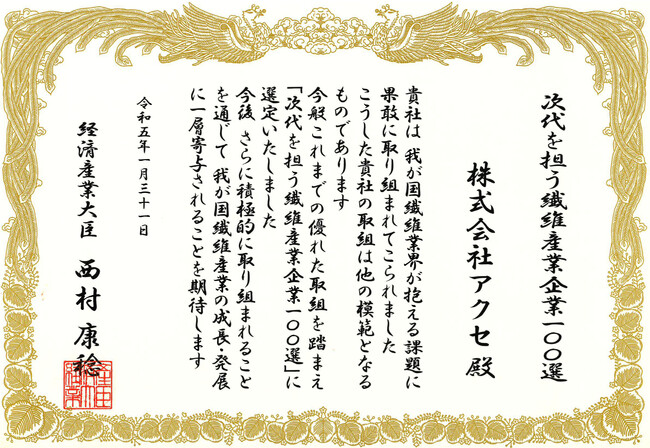 次代を担う繊維産業企業一〇〇選
株式会社アクセ殿
貴社は 我が国繊維業界が抱える課題に
果敢に取り組まれてこられました
こうした貴社の取組は他の模範となる
ものであります
今般 これまでの優れた取組を踏まえ
「次代を担う繊維産業企業一〇〇選」に
選定いたしました
今後 さらに積極的に取り組まれること
を通じて 我が国繊維産業の成長・発展
に一層寄与されることを期待します
令和五年一月三十一日
経済産業大臣 西村康稔